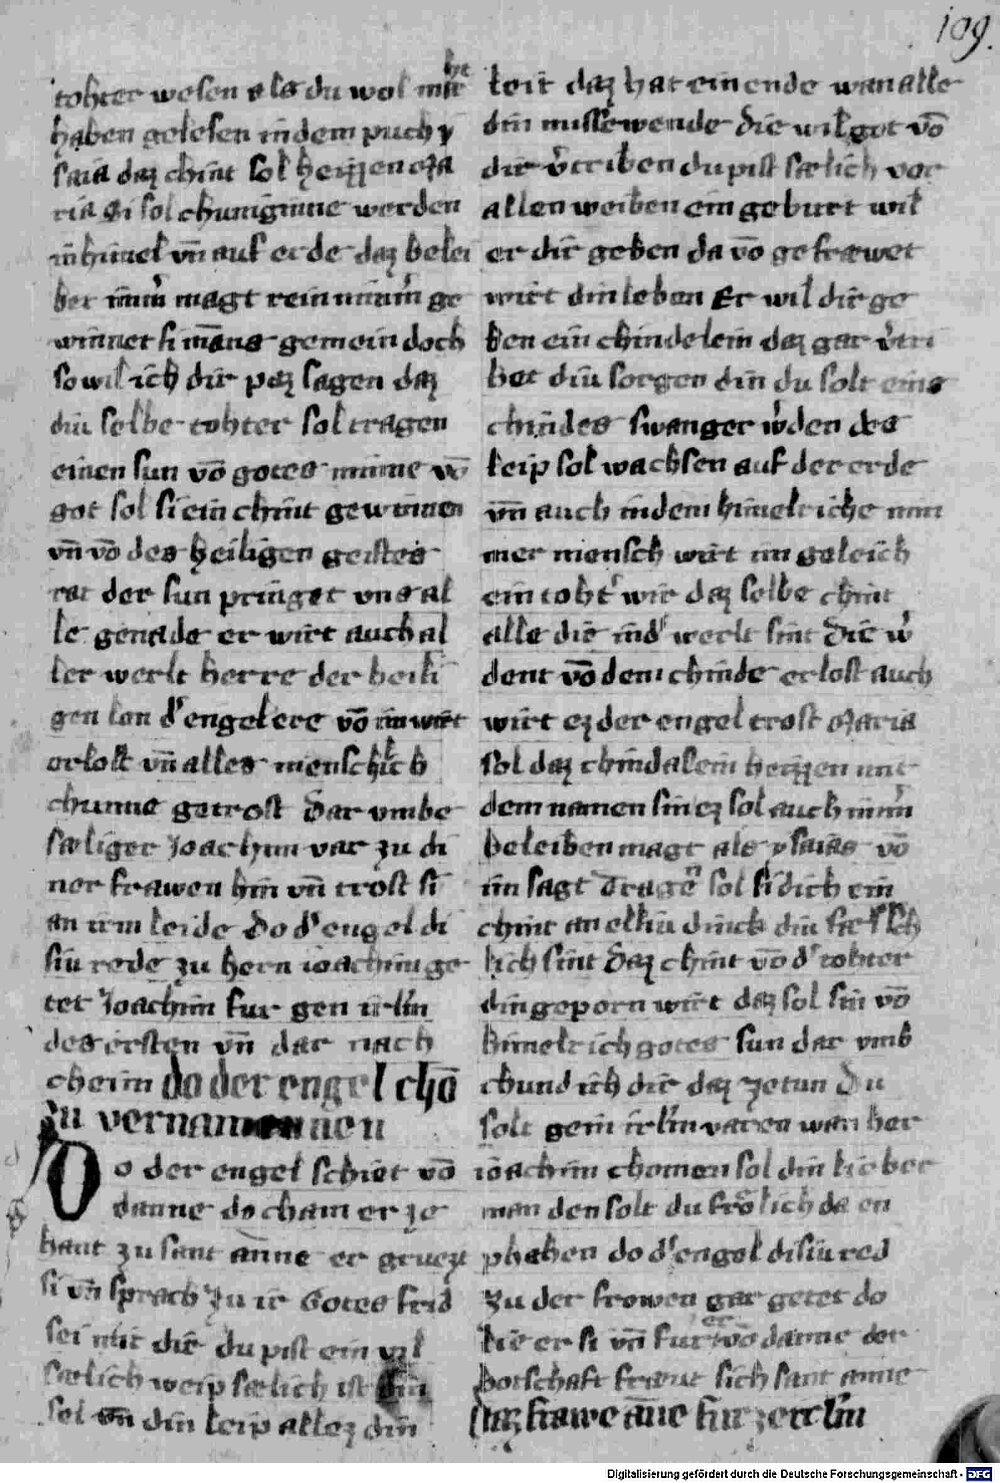 109.
tohter wesen als du wol maht
haben gelesen in dem puch y
saia daz chint sol heizzen ma
ria si sol chuniginne werden
in himel vn̄ auf erde daz belei
bet im̄ magt rein nim̄ ge
winnet si mans gemein doch
so wil ich dir paz sagen daz
diu selbe tohter sol tragen
einen sun vō gotes minne vō
got sol si ein chint gewinnen
vn̄ vō des heiligen geistes
rat der sun pringet vns al
le genade er wirt auch al
ler werlt herre der heili
gen lon d' engel ere vō im wirt
erlost vn̄ alles menschlich
chunne getrost Dar vmbe
sæliger Joachim var zu di
ner frawen hin vn̄ trost si
an irm leide Do d' engel di
siu rede zu hern ioachim ge
tet Joachim fur gen irl'm
des ersten vn̄ dar nach
cheim do der engel chō
zu ver namannen
Do der engel schiet vō
danne do cham er ze
hant zu sant anne er gruezt
si vn̄ sprach zu ir Gotes frid
sei mit dir du pist ein vil
sælich weip sælich ist din
sel vn̄ din leip allez din
leit daz hat ein ende wan alle
din missewende die wil got vō
dir v'triben du pist sælich vor
allen weiben ein geburt wil
er dir geben da vō gefræwet
wirt din leben Er wil dir ge
ben ein chindelein daz gar v'tri
bet diu sorgen din du solt eins
chindes swanger w'den des
leip sol wachsen auf der erde
vn̄ auch in dem himelriche nim
mer mensch wirt im geleich
ein toht' wir daz selbe chint
alle die in d' werlt sint Die w'
dent vō dem chinde erlost auch
wirt ez der engel trost Maria
sol daz chindelein heizzen mit
dem namen sin ez sol auch nim̄
beleiben magt als ysaias vō
im sagt Tragen sol si dich ein
chint an elliu dinck diu flæsch
lich sint Daz chint vō d' tohter
din geporn wirt daz sol sin vō
himelrich gotes sun dar vmb
chund ich dir daz ze tun Du
solt gein irl'm varen wan her
ioachim chomen sol din lieber
man den solt du frölich da en
phahen do d' engel disiu red
zu der frowen gar getet do
lie er si vn̄ fur er vō danne der
botschaft fræut sich sant anne
Daz frawe āne fur ze irl'm
Digitalisierung gefördert durch die Deutsche Forschungsgemeinschaft - DFG